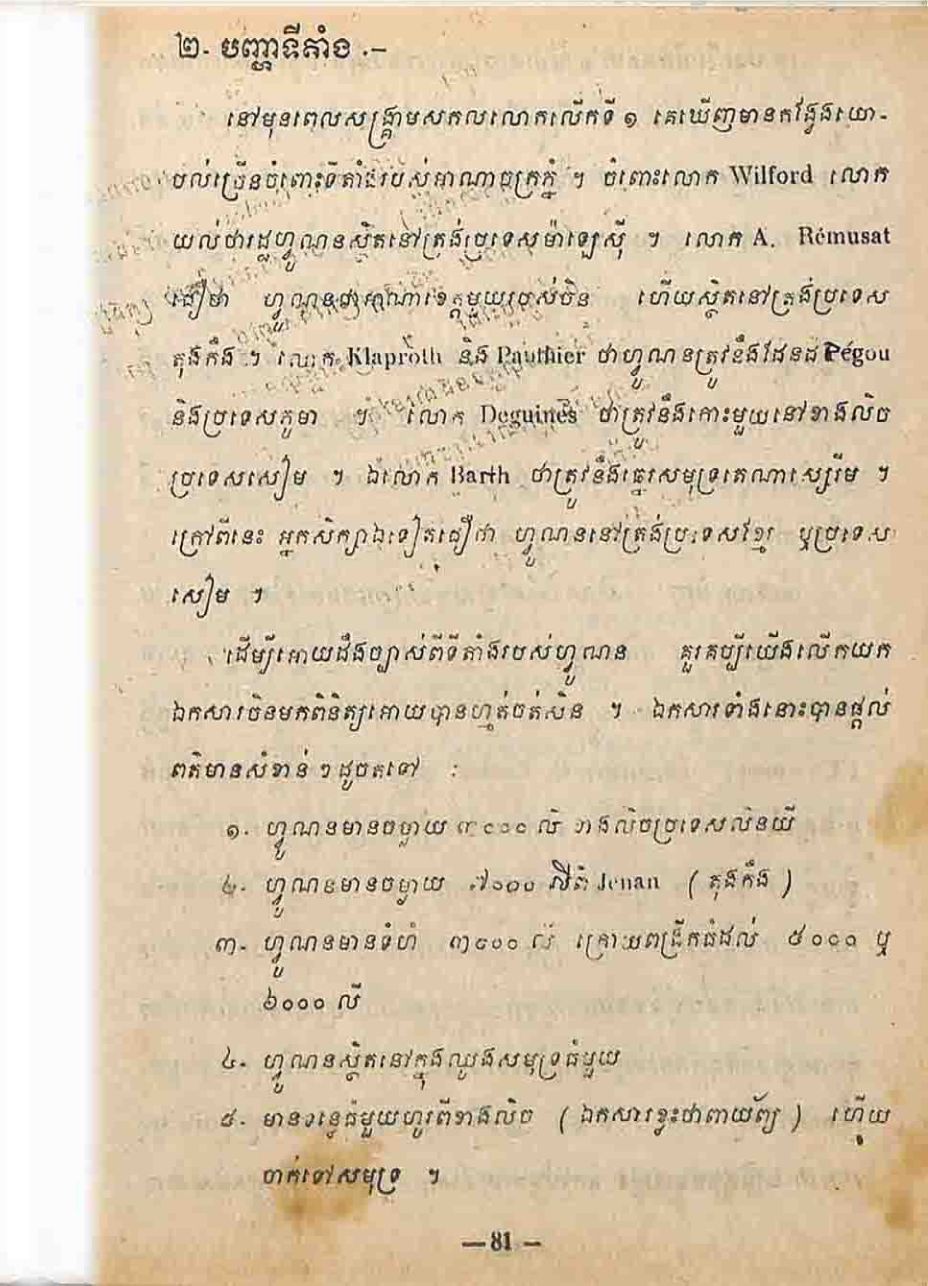 ២- បញ្ហាទីតាំង .-
នៅមុនពេលសង្គ្រាមសកលលោកលើកទី ១ គេឃើញមានកង្វែងយោ-
បល់ច្រើនចំពោះទីតាំងរបស់អាណាចក្រភ្នំ ។ ចំពោះលោក Wilford លោក
យល់ថារដ្ឋហ្វូណនស្ថិតនៅត្រង់ប្រទេសម៉ាឡេស៊ី ។ លោក A. Rémusat
ជឿថា ហ្វូណនជាអាណាខេត្តមួយរបស់ចិន ហើយស្ថិតនៅត្រង់ប្រទេស
តុងកឹង ។ លោក Klaproth និង Pauthier ថាហ្វូណនត្រូវនឹងដែនដី Pégou
និងប្រទេសភូមា ។ លោក Deguines ថាត្រូវនឹងកោះមួយនៅខាងលិច
ប្រទេសសៀម ។ ឯលោក Barth ថាត្រូវនឹងឆ្នេរសមុទ្រតេណាស្សេរីម ។
ក្រៅពីនេះ អ្នកសិក្សាឯទៀតជឿថា ហ្វូណននៅត្រង់ប្រទេសខ្មែរ ឬប្រទេស
សៀម ។
ដើម្បីអោយដឹងច្បាស់ពីទីតាំងរបស់ហ្វូណន គួរគប្បីយើងលើកយក
ឯកសារចិនមកពិនិត្យអោយបានហ្មត់ចត់សិន ។ ឯកសារទាំងនោះបានផ្តល់
ពត៌មានសំខាន់ ៗ ដូចតទៅ :
១- ហ្វូណនមានចម្ងាយ ៣០០០ លី ខាងលិចប្រទេសលិនយី
២- ហ្វូណនមានចម្ងាយ ៧០០០ លីពី Jenan ( តុងកឹង )
៣- ហ្វូណនមានទំហំ ៣០០០ លី ក្រោយពង្រីកធំដល់ ៥០០០ ឬ
៦០០០ លី
៤- ហ្វូណនស្ថិតនៅក្នុងឈូងសមុទ្រធំមួយ
៥- មានទន្លេធំមួយហូរពីខាងលិច ( ឯកសារខ្លះថាពាយ័ព្យ ) ហើយ
ចាក់ទៅសមុទ្រ ។
— 81 —